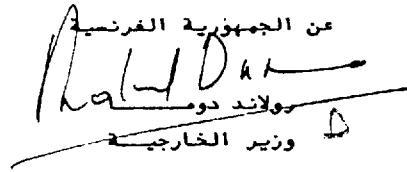 عن الجمهورية الفرنسية
رولاند دومـــا
وزير الخارجيـــة